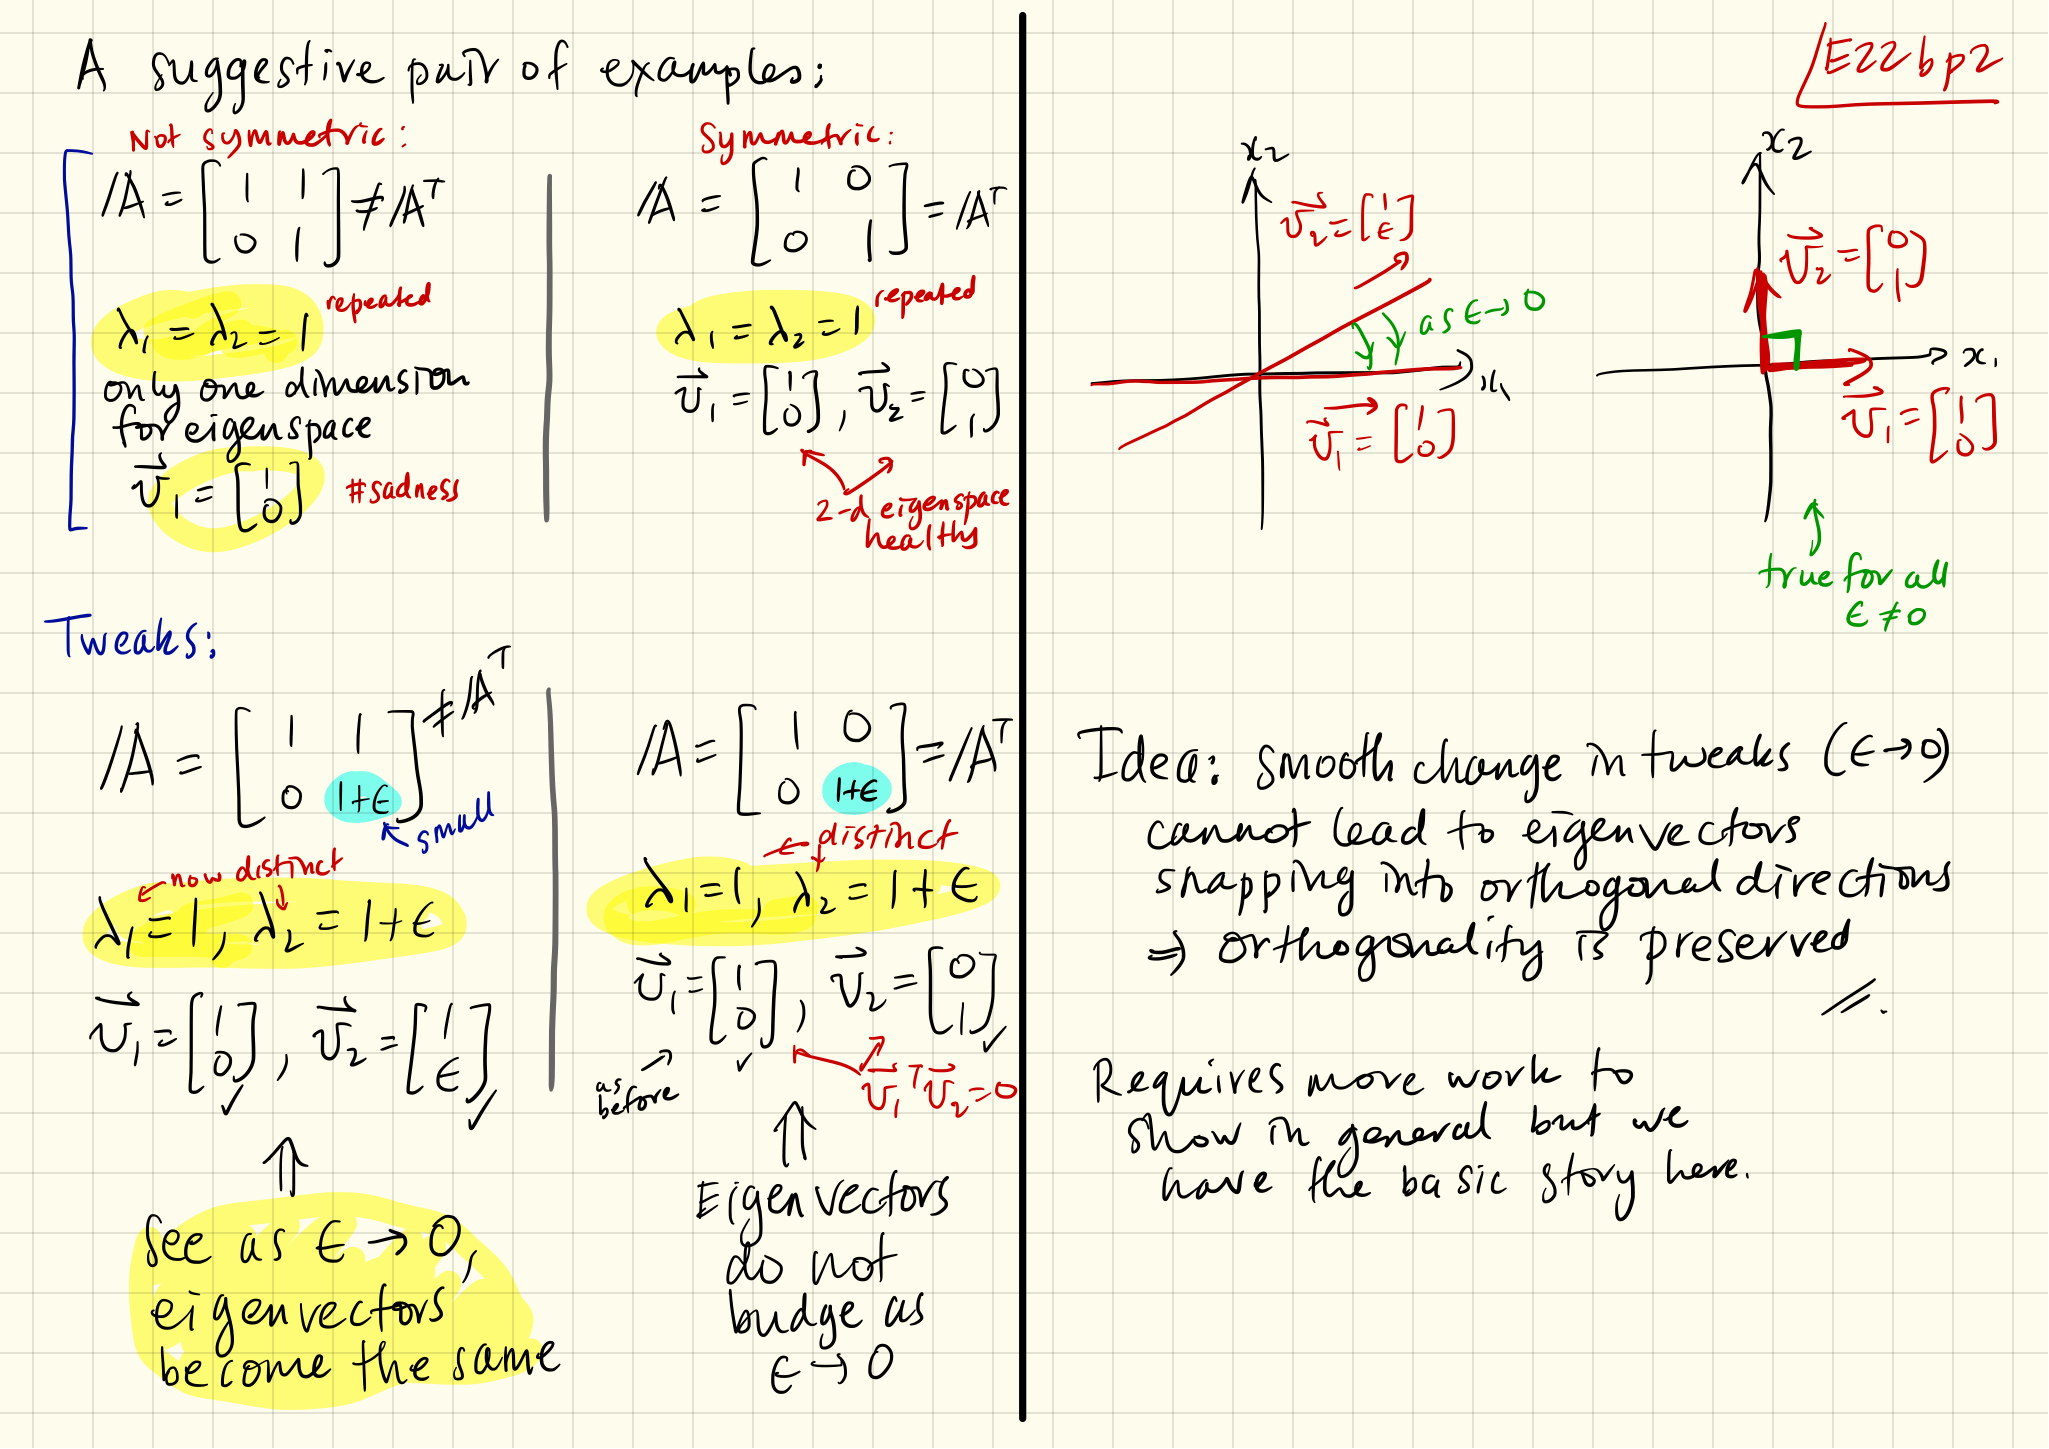 A suggestive pair of examples:
Not symmetric:
A = [1 1; 0 1] ≠ A^T
λ₁ = λ₂ = 1 repeated
only one dimension
for eigenspace
v⃗₁ = [1; 0] #sadness
Symmetric:
A = [1 0; 0 1] = A^T
λ₁ = λ₂ = 1 repeated
v⃗₁ = [1; 0], v⃗₂ = [0; 1]
2-d eigenspace
healthy
Tweaks:
A = [1 1; 0 1+ε] ≠ A^T
small
← now distinct
λ₁ = 1, λ₂ = 1+ε
v⃗₁ = [1; 0], v⃗₂ = [1; ε]
✓ ✓
⇑
See as ε → 0,
eigenvectors
become the same
A = [1 0; 0 1+ε] = A^T
← distinct
λ₁ = 1, λ₂ = 1+ε
v⃗₁ = [1; 0], v⃗₂ = [0; 1]
✓ ✓
as
before
v⃗₁^T v⃗₂ = 0
⇑
Eigenvectors
do not
budge as
ε → 0
E22bp2
x₂
v⃗₂ = [1; ε]
as ε → 0
x₁
v⃗₁ = [1; 0]
x₂
v⃗₂ = [0; 1]
x₁
v⃗₁ = [1; 0]
true for all
ε ≠ 0
Idea: smooth change in tweaks (ε → 0)
cannot lead to eigenvectors
snapping into orthogonal directions
⇒ orthogonality is preserved
//.
Requires more work to
show in general but we
have the basic story here.